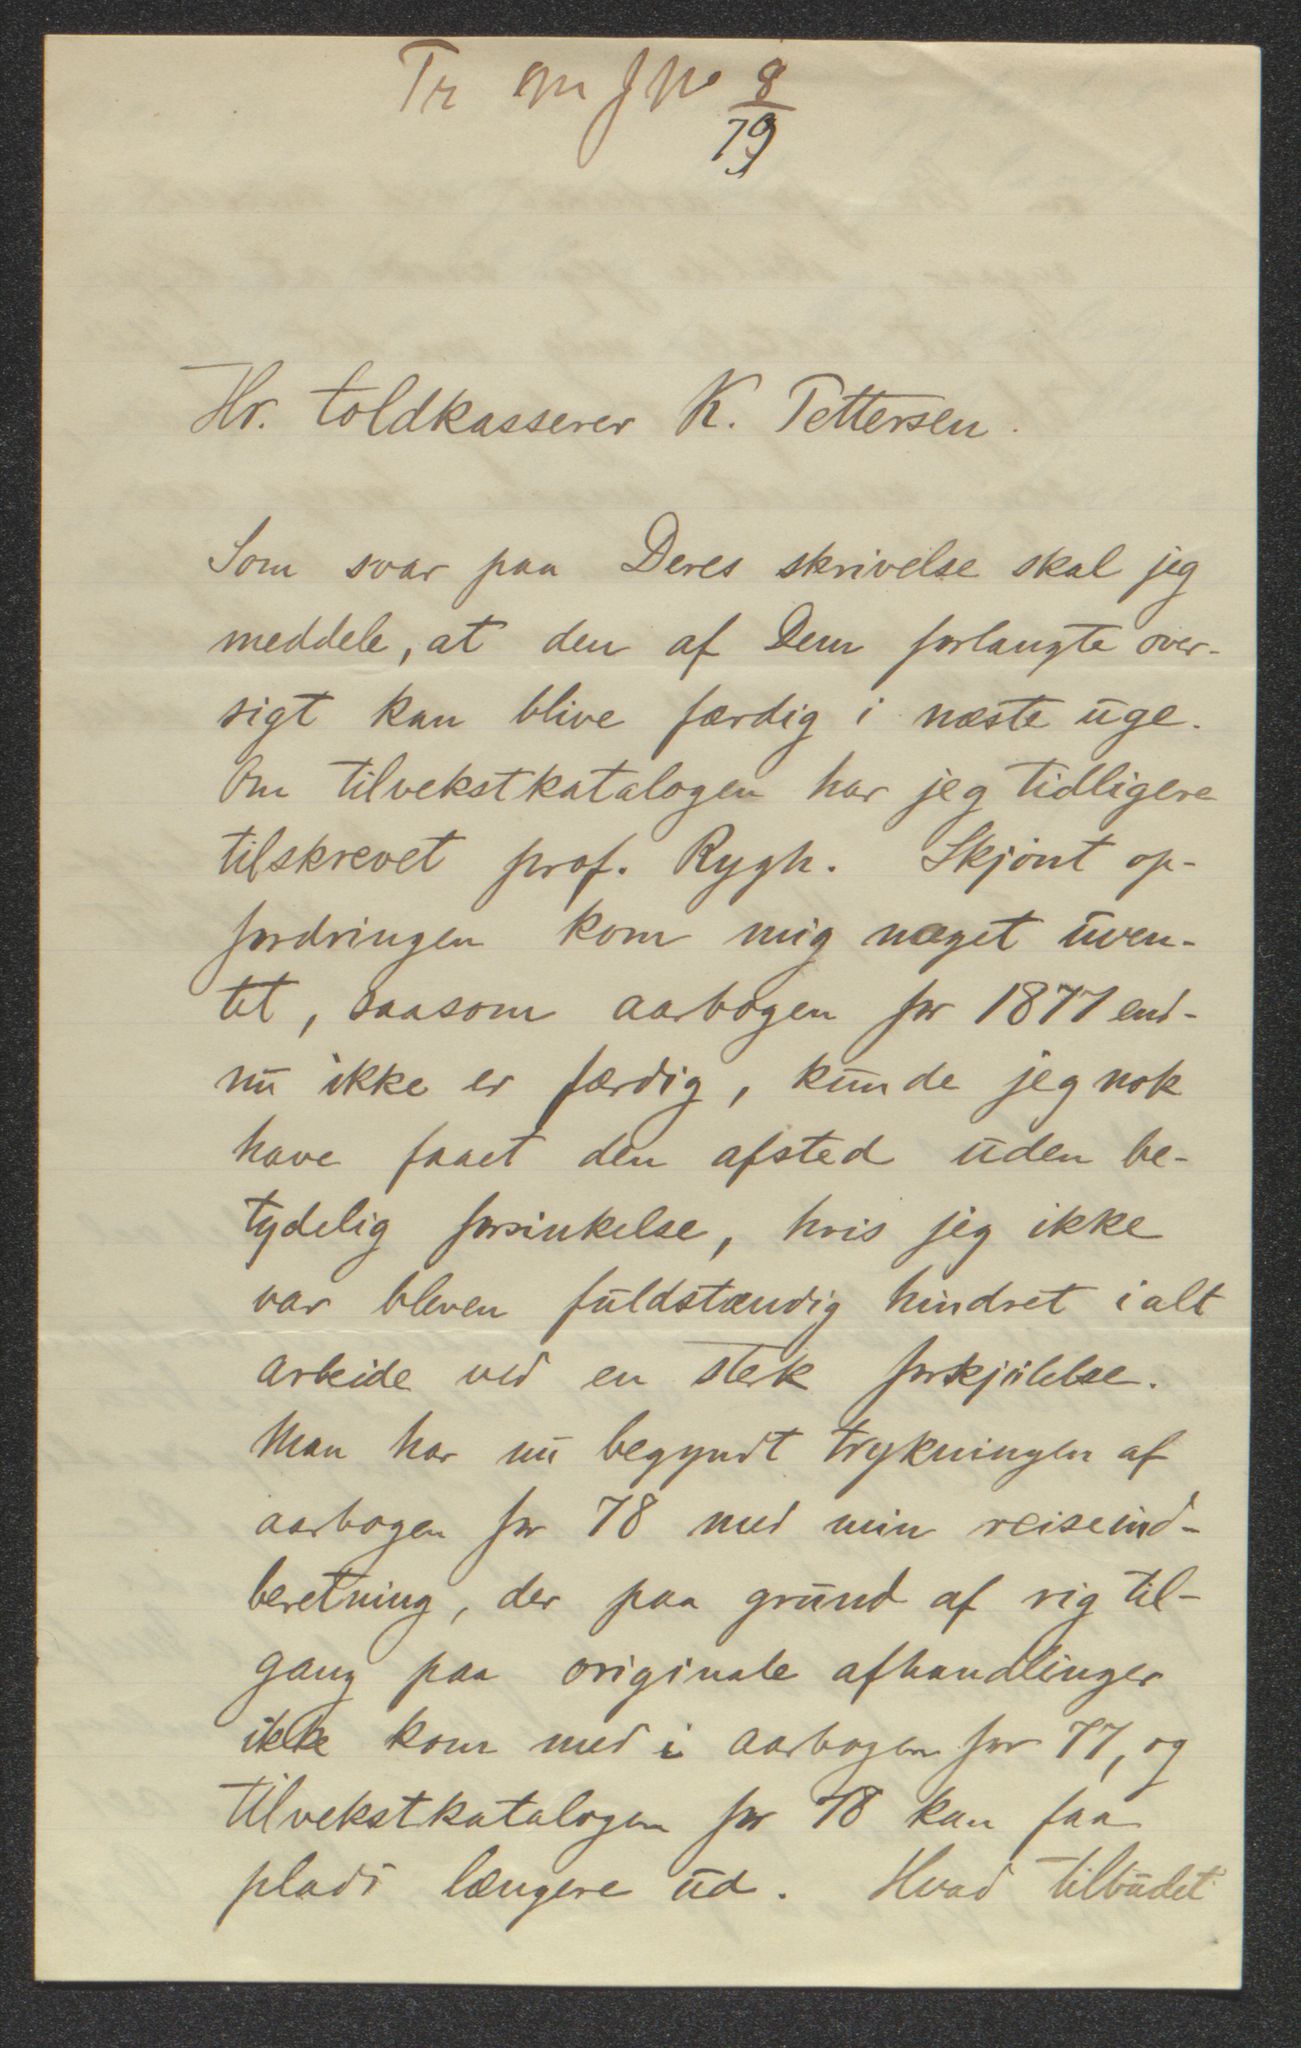 Tr M J No 8/79
Hr. toldkasserer K. Pettersen.
Som svar paa Deres skrivelse skal jeg
meddele, at den af Dem forlangte over-
sigt kan blive færdig i næste uge.
Om tilvekstkatalogen har jeg tidligere
tilskrevet prof. Rygh. Skjönt op-
fordringen kom mig noget uven-
tet, saasom aarbogen for 1877 end-
nu ikke er færdig, kunde jeg nok
have faaet den afsted uden be-
tydelig forsinkelse, hvis jeg ikke
var bleven fuldstændig hindret i alt
arbeide ved en sterk forkjölelse.
Man har nu begyndt trykningen af
aarbogen for 78 med min reiseind-
beretning, der paa grund af rig til-
gang paa originale afhandlinger
ikke kom med i aarbogen for 77, og
tilvekstkatalogen for 78 kan faa
plads længere ud. Hvad tilbudet